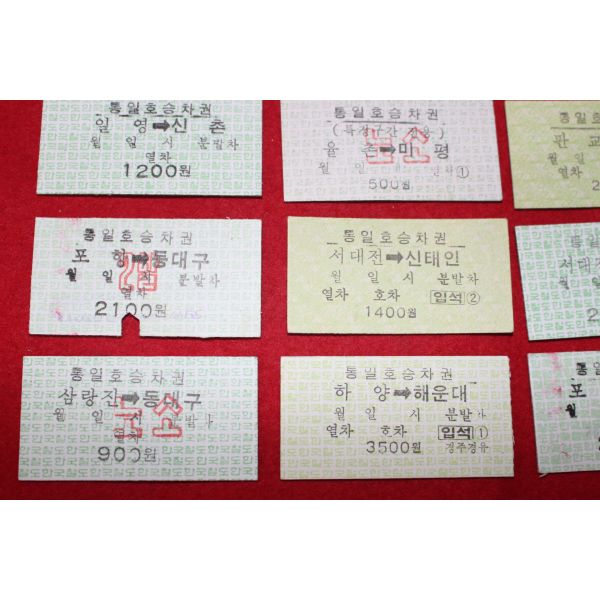 통일호승차권
일 영➡신 촌
월 일 시 분발차
열차
1200원
통일호승차권
(특정구간 전용)
율 촌➡미 평
월 일
①
500원
소
판 교
월 일
열차
2
통일호승차권
포 항➡동대구
월 일 시 분발차
열차
2100원
통일호승차권
서대전➡신태인
월 일 시 분발차
열차 호차 입석 ②
1400원
서대전
월
열차
2
통일호승차권
삼랑진➡동대구
월 일 시 분발차
열차
900원
소
통일호승차권
하 양➡해운대
월 일 시 분발차
열차 호차 입석 ①
3500원 경주경유
통일
포
월